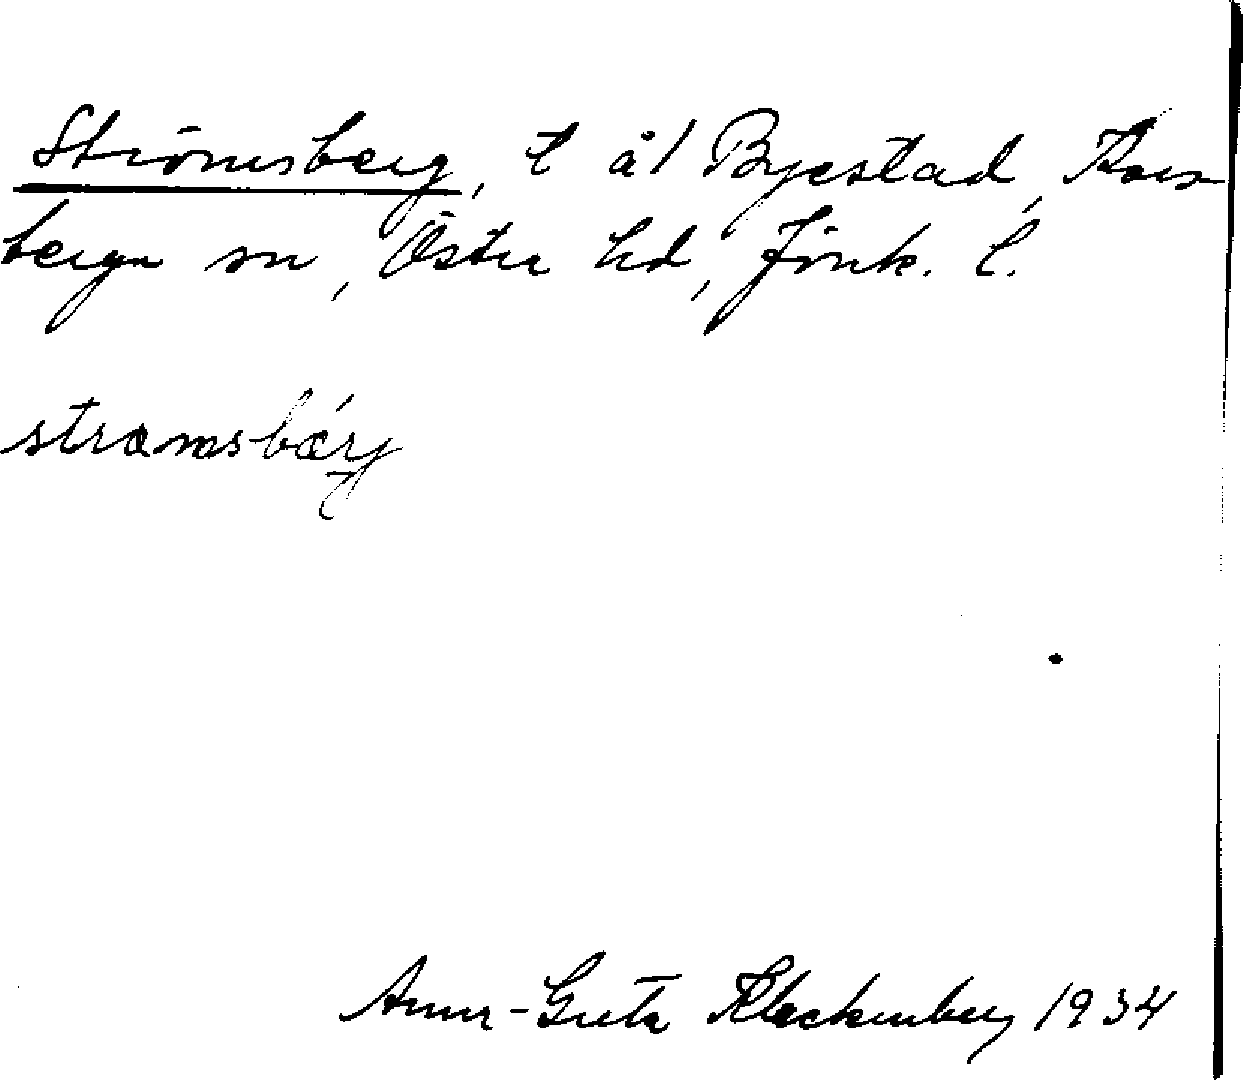 Strömsberg, t å/ Byestad, Kors-
berga sn, Östra hd, Jönk. l.
strœmsbǽrj
Anna-Greta Klackenberg 1934